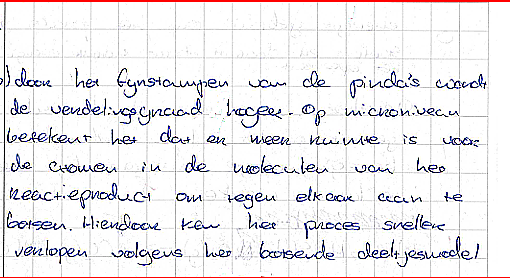 ) door het fijnstampen van de pinda's wordt
de verdelingsgraad hoger. Op microniveau
betekent het dat er meer ruimte is voor
de atomen in de moleculen van het
reactieproduct om tegen elkaar aan te
botsen. Hierdoor kan het proces sneller
verlopen volgens het botsende deeltjesmodel